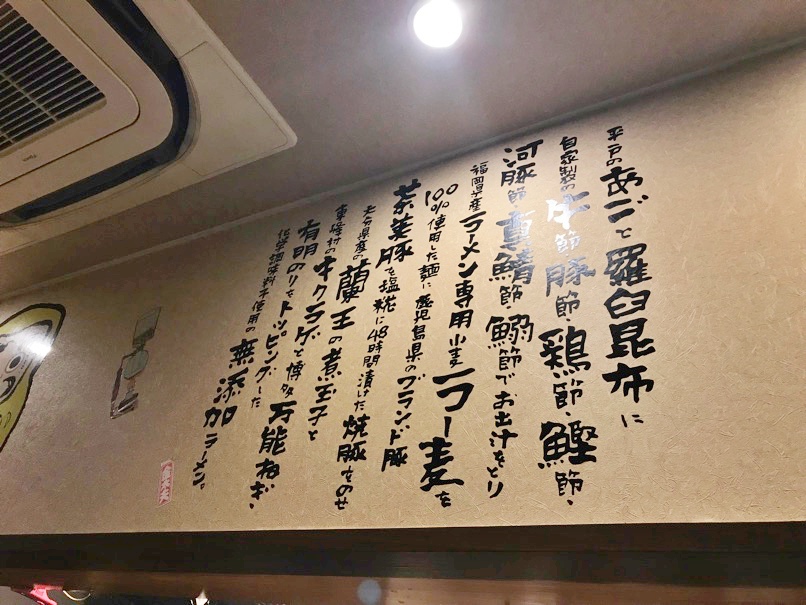 平戸のあごと羅臼昆布に
自家製の牛節、豚節、鶏節、鰹節、
河豚節、真鯖節、鰯節でお出汁をとり
福岡県産ラーメン専用小麦ラー麦を
100%使用した麺に鹿児島県のブランド豚
茶美豚を塩糀に48時間漬けた焼豚をのせ
大分県産の蘭王の煮玉子と
東峰村のキクラゲと博多万能ねぎ、
有明のりをトッピングした
化学調味料不使用の無添加ラーメン。